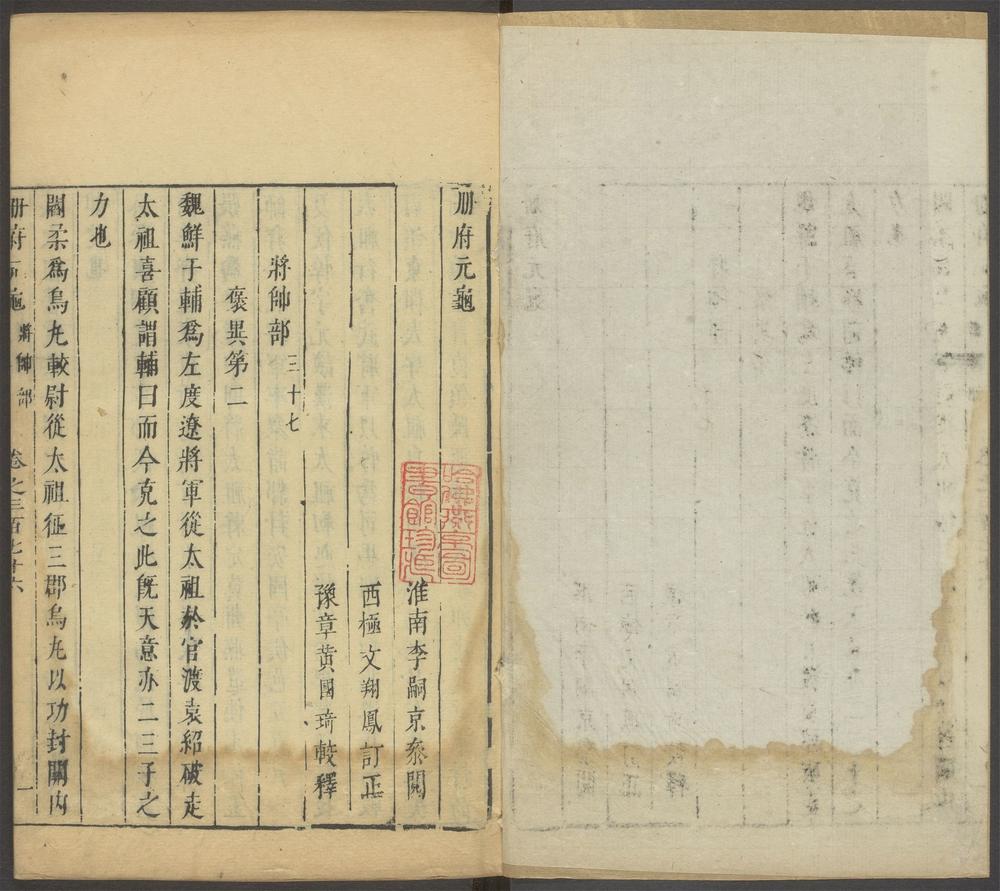 冊府元龜
淮南李嗣京叅閱
西極文翔鳳訂正
豫章黃國琦較釋
將帥部 三十七
褒異第二
魏鮮于輔爲左度遼將軍從太祖於官渡袁紹破走
太祖喜顧謂輔曰而今克之此旣天意亦二三子之
力也
閻柔爲烏九較尉從太祖征三郡烏九以功封關內
冊府元龜 將帥部 卷之三百七十六 一
哈佛燕京圖
書館珍藏